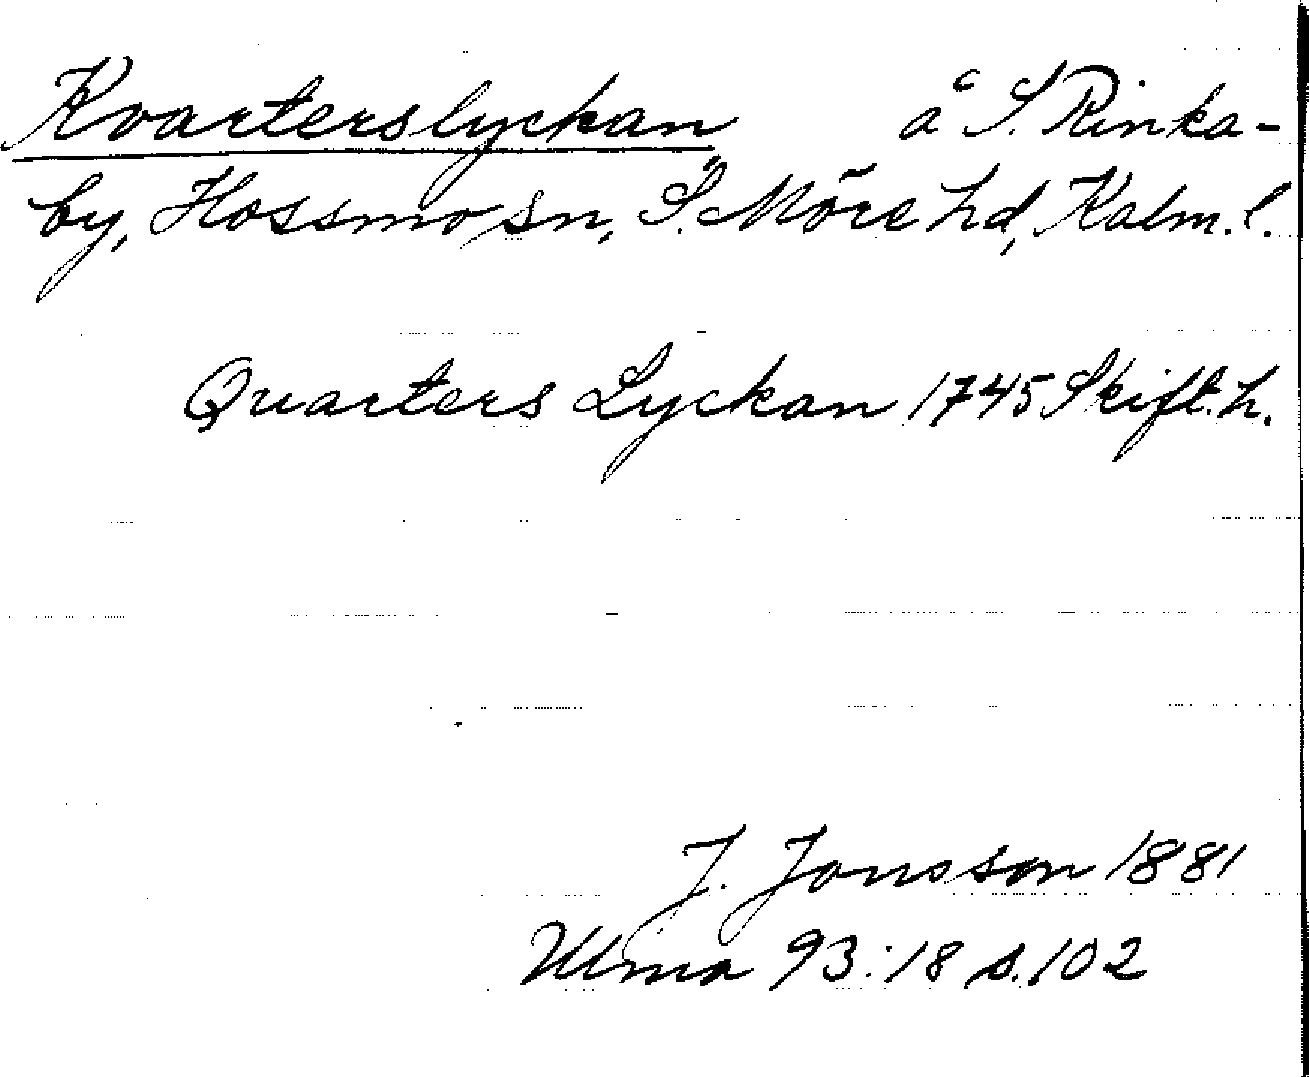 Kvarterslyckan å S. Rinka-
by, Hossmo sn, S. Möre hd, Kalm. l.
Quarters Lyckan 1745 Skift. h.
J. Jonsson 1881
Ulma 93:18 s. 102